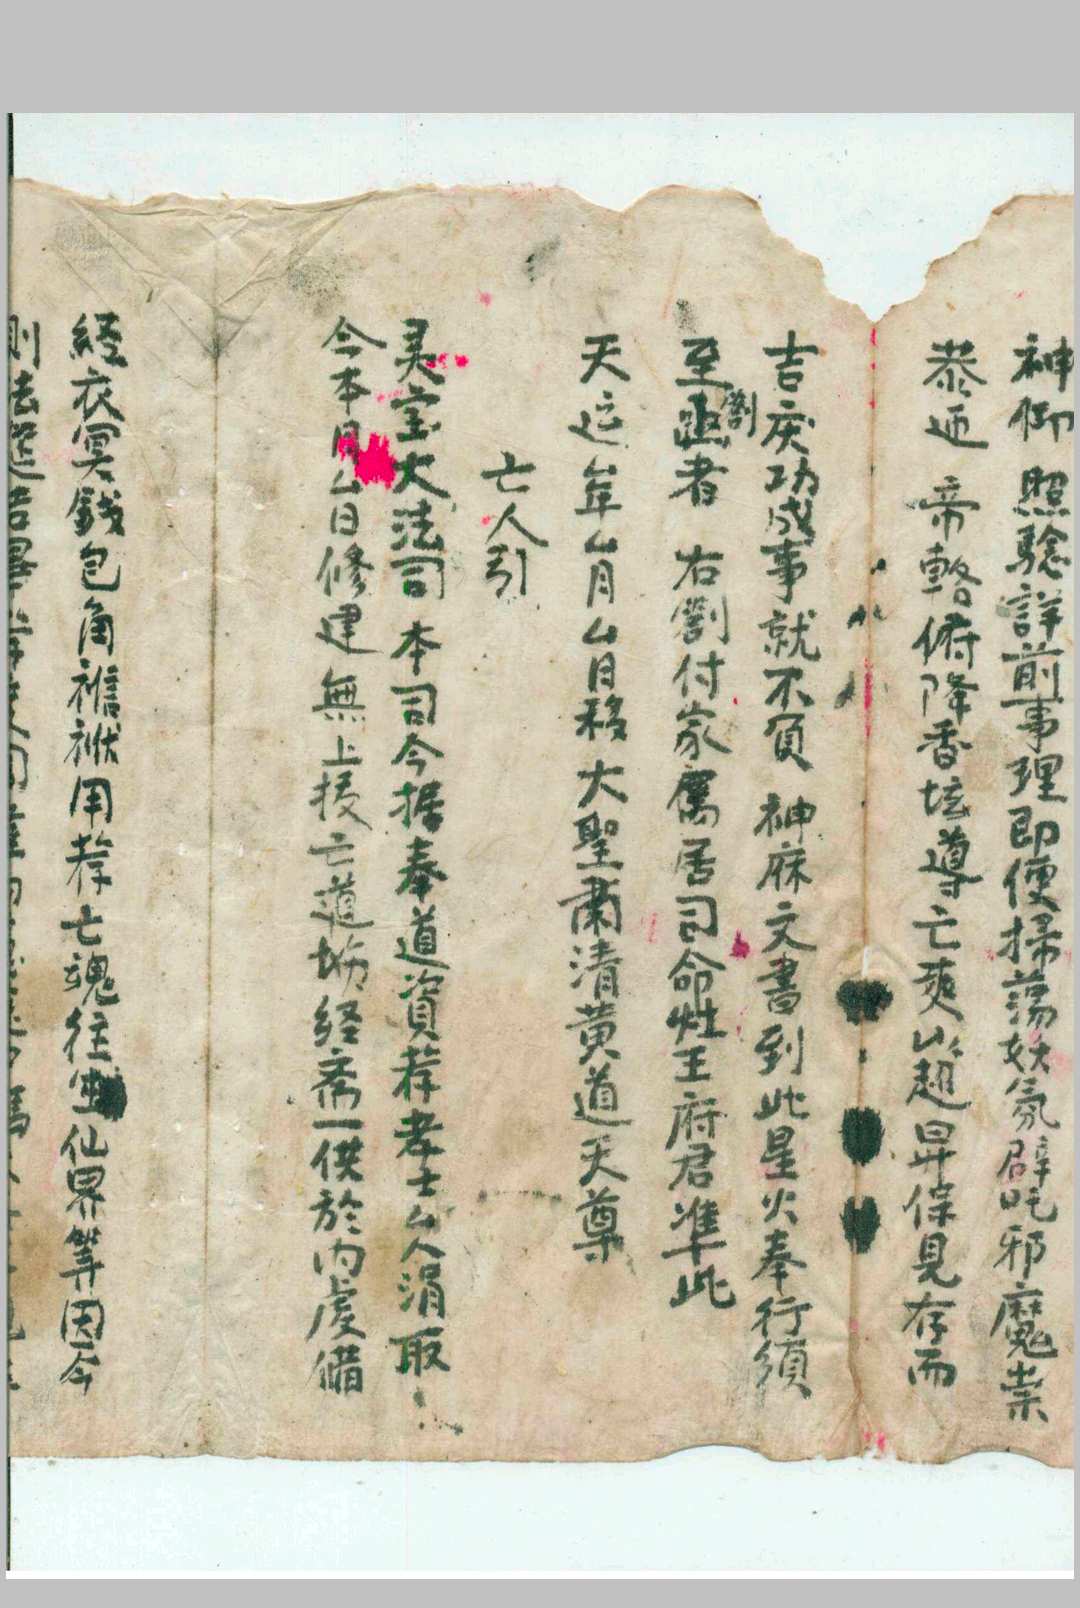 神御 照驗詳前事理即便掃蕩妖氛辟叱邪魔祟
恭迎 帝輅俯降香坛導亡爽以超昇保見存而
吉庆功成事就不負 神庥文書到此星火奉行須
至劄者 右劄付家居司命灶王府君准此
天运厶年厶月厶日移大聖肅清黄道天尊
亡人引
灵宝大法司 本司今据奉道資荐孝士厶人涓取
今本月厶日修建無上拔亡道場経斋一供於内虔備
経衣冥錢包角襜袱用荐亡魂往生仙界等因今
則法